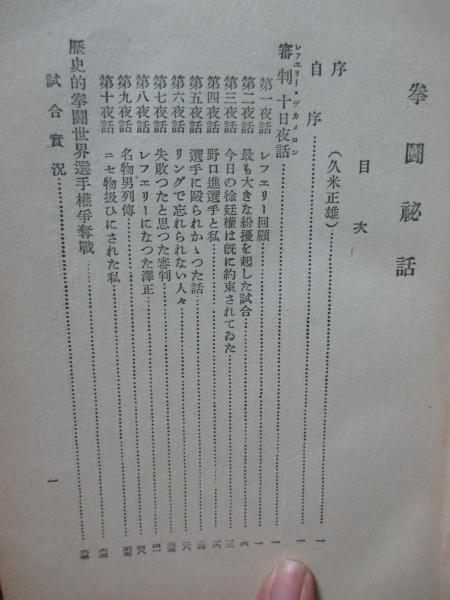 拳鬪祕話
目次
序(久米正雄)…………一
自序…………一
レフエリー・デカメロン
審判十日夜話…………一
第一夜話 レフエリー回顧…………一
第二夜話 最も大きな紛擾を起した試合…………六
第三夜話 今日の徐廷權は既に約束されてゐた…………三
第四夜話 野口進選手と私
第五夜話 選手に毆られかゝつた話
第六夜話 リングで忘れられない人々
第七夜話 失敗つたと思つた審判
第八夜話 レフエリーになつた澤正
第九夜話 名物男列傳
第十夜話 ニセ物扱ひにされた私
歷史的拳鬪世界選手權爭奪戰
試合實況
一